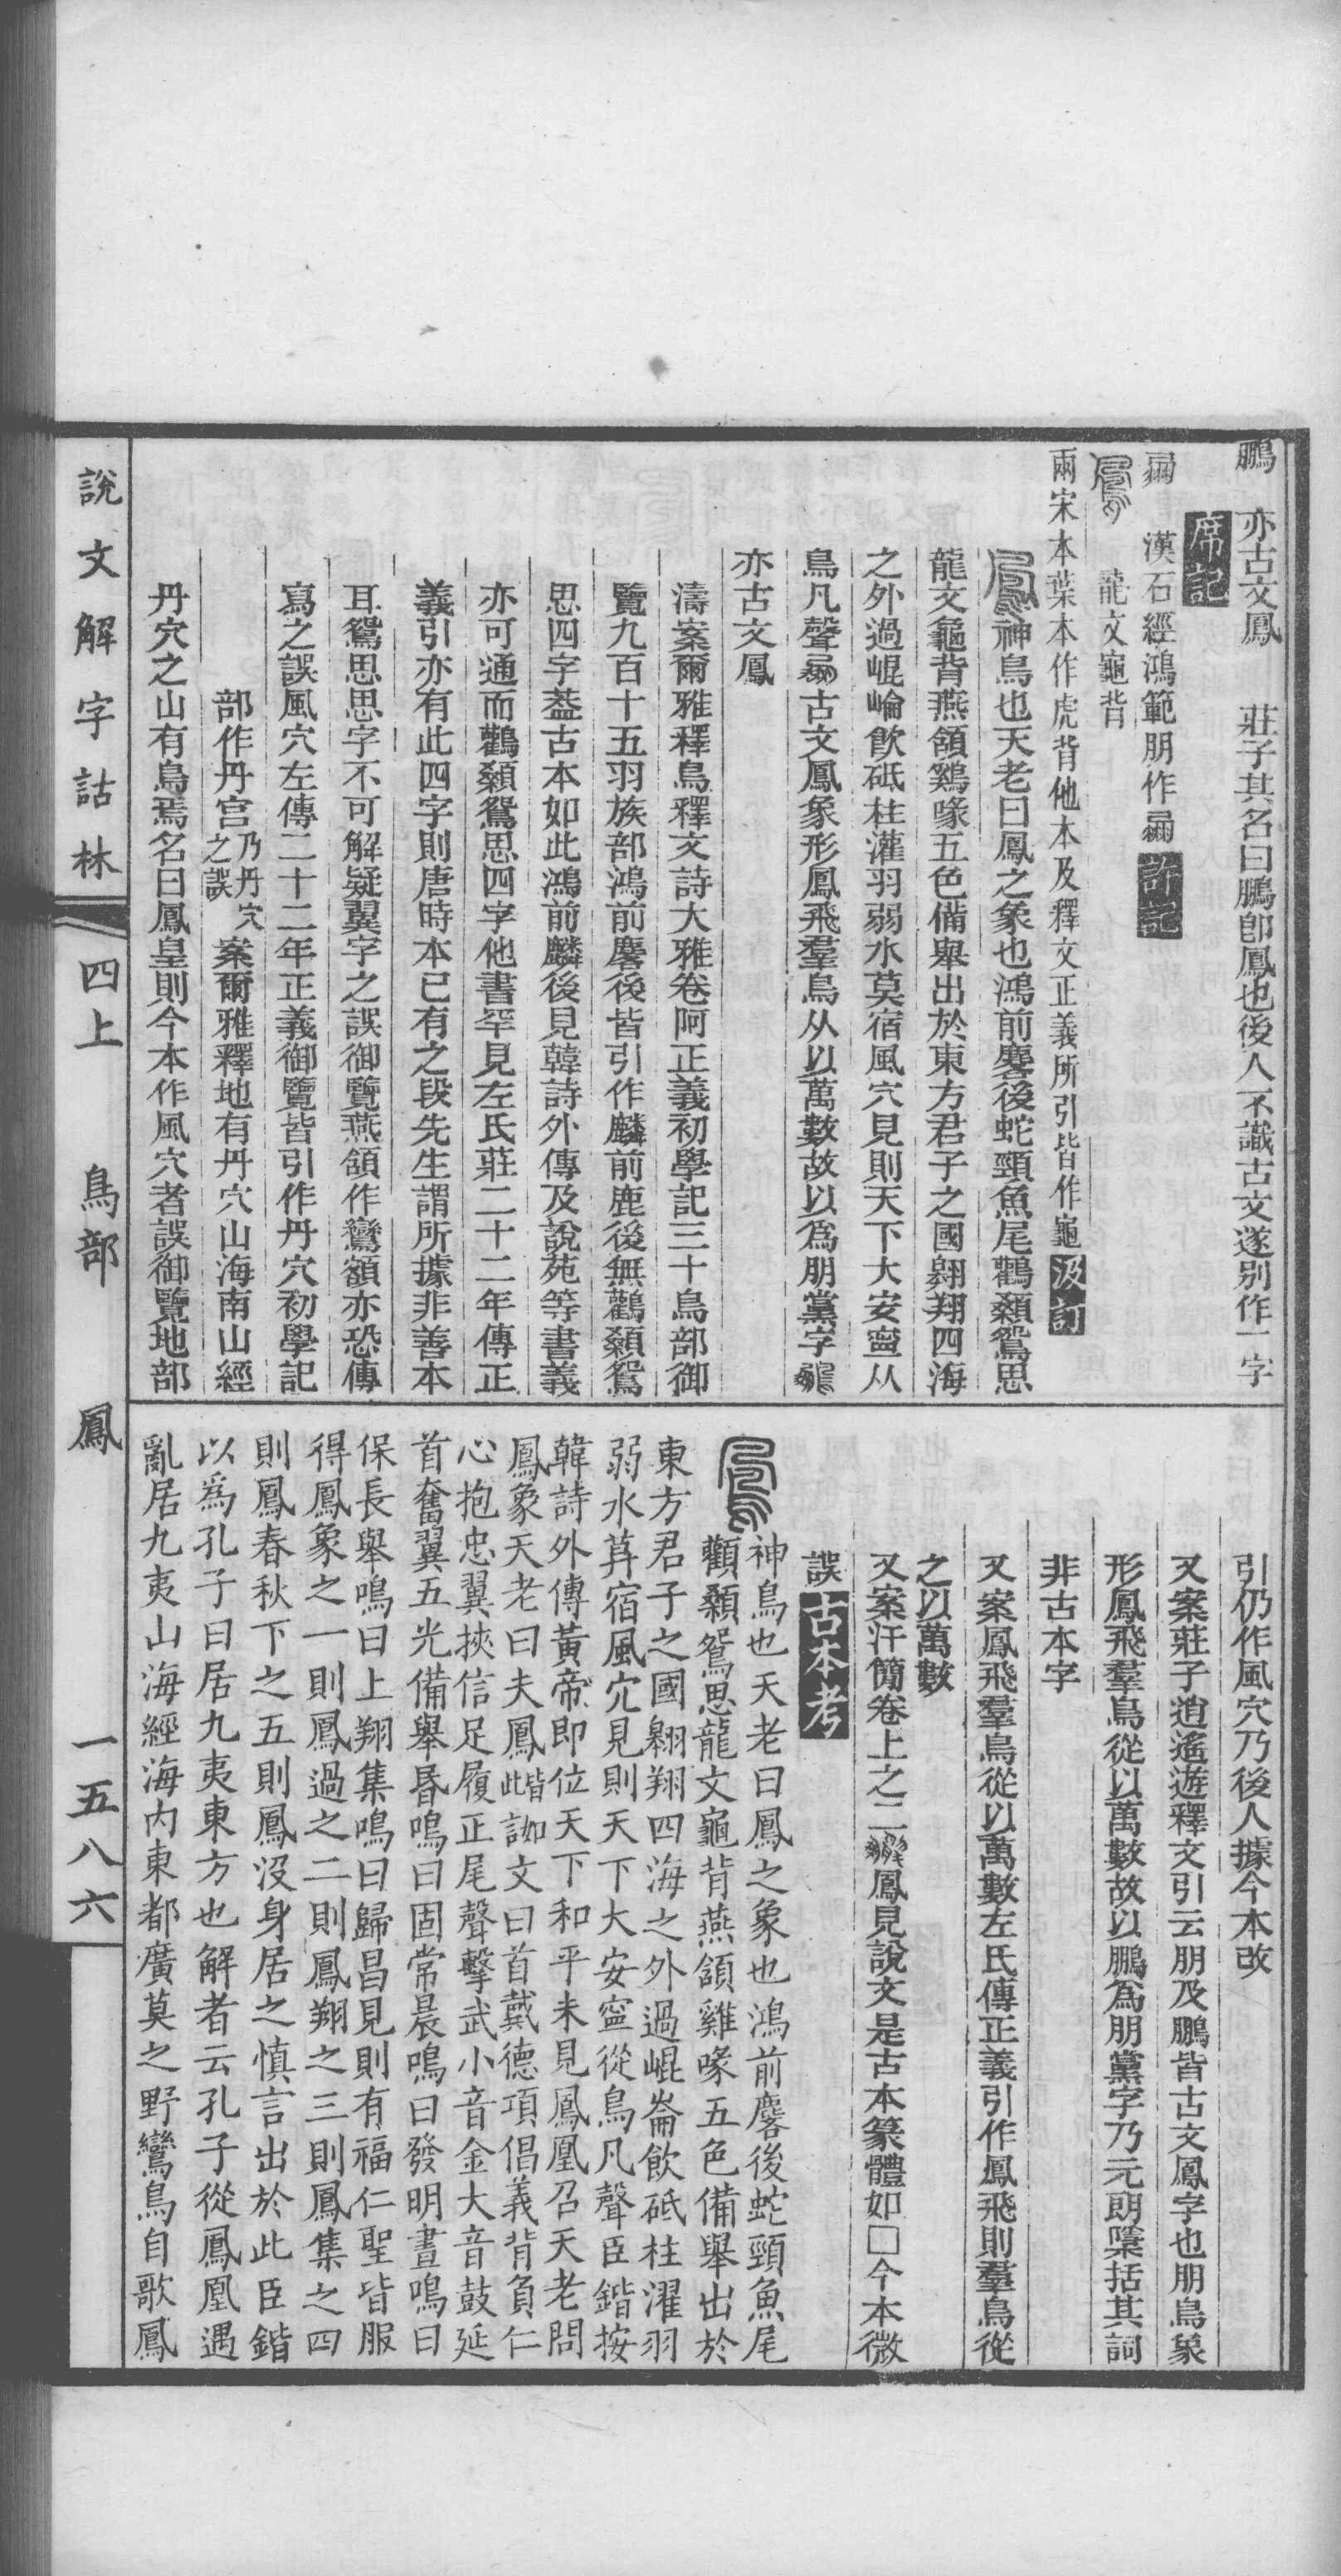 鵬 亦古文鳳 莊子其名曰鵬卽鳳也後人不識古文遂别作一字
席記
漢石經鴻範朋作 許記
龍文龜背
兩宋本葉本作虎背他本及釋文正義所引皆作龜 汲訂
神鳥也天老曰鳳之象也鴻前麐後蛇頸魚尾鸛顙鴛思
龍文龜背燕頷鷄喙五色備舉出於東方君子之國翱翔四海
之外過崐崘飮砥柱濯羽弱水莫宿風穴見則天下大安寍从
鳥凡聲 古文鳳象形鳳飛羣鳥从以萬數故以爲朋黨字
亦古文鳳
濤案爾雅釋鳥釋文詩大雅卷阿正義初學記三十鳥部御
覽九百十五羽族部鴻前麐後皆引作麟前鹿後無鸛顙鴛
思四字葢古本如此鴻前麟後見韓詩外傳及說苑等書義
亦可通而鸛顙鴛思四字他書罕見左氏莊二十二年傳正
義引亦有此四字則唐時本已有之段先生謂所據非善本
耳鴛思思字不可解疑翼字之誤御覽燕頷作鸞額亦恐傳
寫之誤風穴左傳二十二年正義御覽皆引作丹穴初學記
部作丹宫乃丹穴之誤案爾雅釋地有丹穴山海南山經
丹穴之山有鳥焉名曰鳳皇則今本作風穴者誤御覽地部
引仍作風穴乃後人據今本改
又案莊子逍遙遊釋文引云朋及鵬皆古文鳳字也朋鳥象
形鳳飛羣鳥從以萬數故以鵬爲朋黨字乃元朗櫽括其詞
非古本字
又案鳳飛羣鳥從以萬數左氏傳正義引作鳳飛則羣鳥從
之以萬數
又案汗簡卷上之二 鳳見說文是古本篆體如□今本微
誤 古本考
神鳥也天老曰鳳之象也鴻前麐後蛇頸魚尾
鸛顙鴛思龍文龜背燕頷雞喙五色備舉出於
東方君子之國翱翔四海之外過崐崙飲砥柱濯羽
弱水莫宿風穴見則天下大安寍從鳥凡聲臣鍇按
韓詩外傳黃帝卽位天下和平未見鳳凰召天老問
鳳象天老曰夫鳳 文曰首戴德項倡義背負仁
心抱忠翼挾信足履正尾聲擊武小音金大音鼓延
首奮翼五光備舉昏鳴曰固常晨鳴曰發明晝鳴曰
保長舉鳴曰上翔集鳴曰歸昌見則有福仁聖皆服
得鳳象之一則鳳過之二則鳳翔之三則鳳集之四
則鳳春秋下之五則鳳沒身居之愼言出於此臣鍇
以爲孔子曰居九夷東方也解者云孔子從鳳凰遇
亂居九夷山海經海内東都廣莫之野鸞鳥自歌鳳
說文解字詁林 四上 鳥部 鳳 一五八六